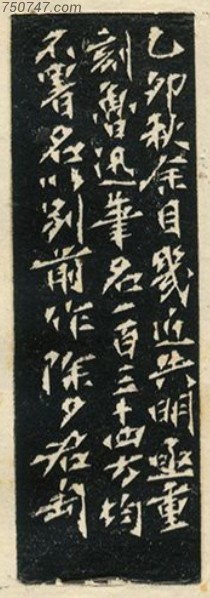 750747.com
乙卯秋余目几近失明亟重
刻鲁迅笔名一百三十四方均
不署名以别前作除夕君匋